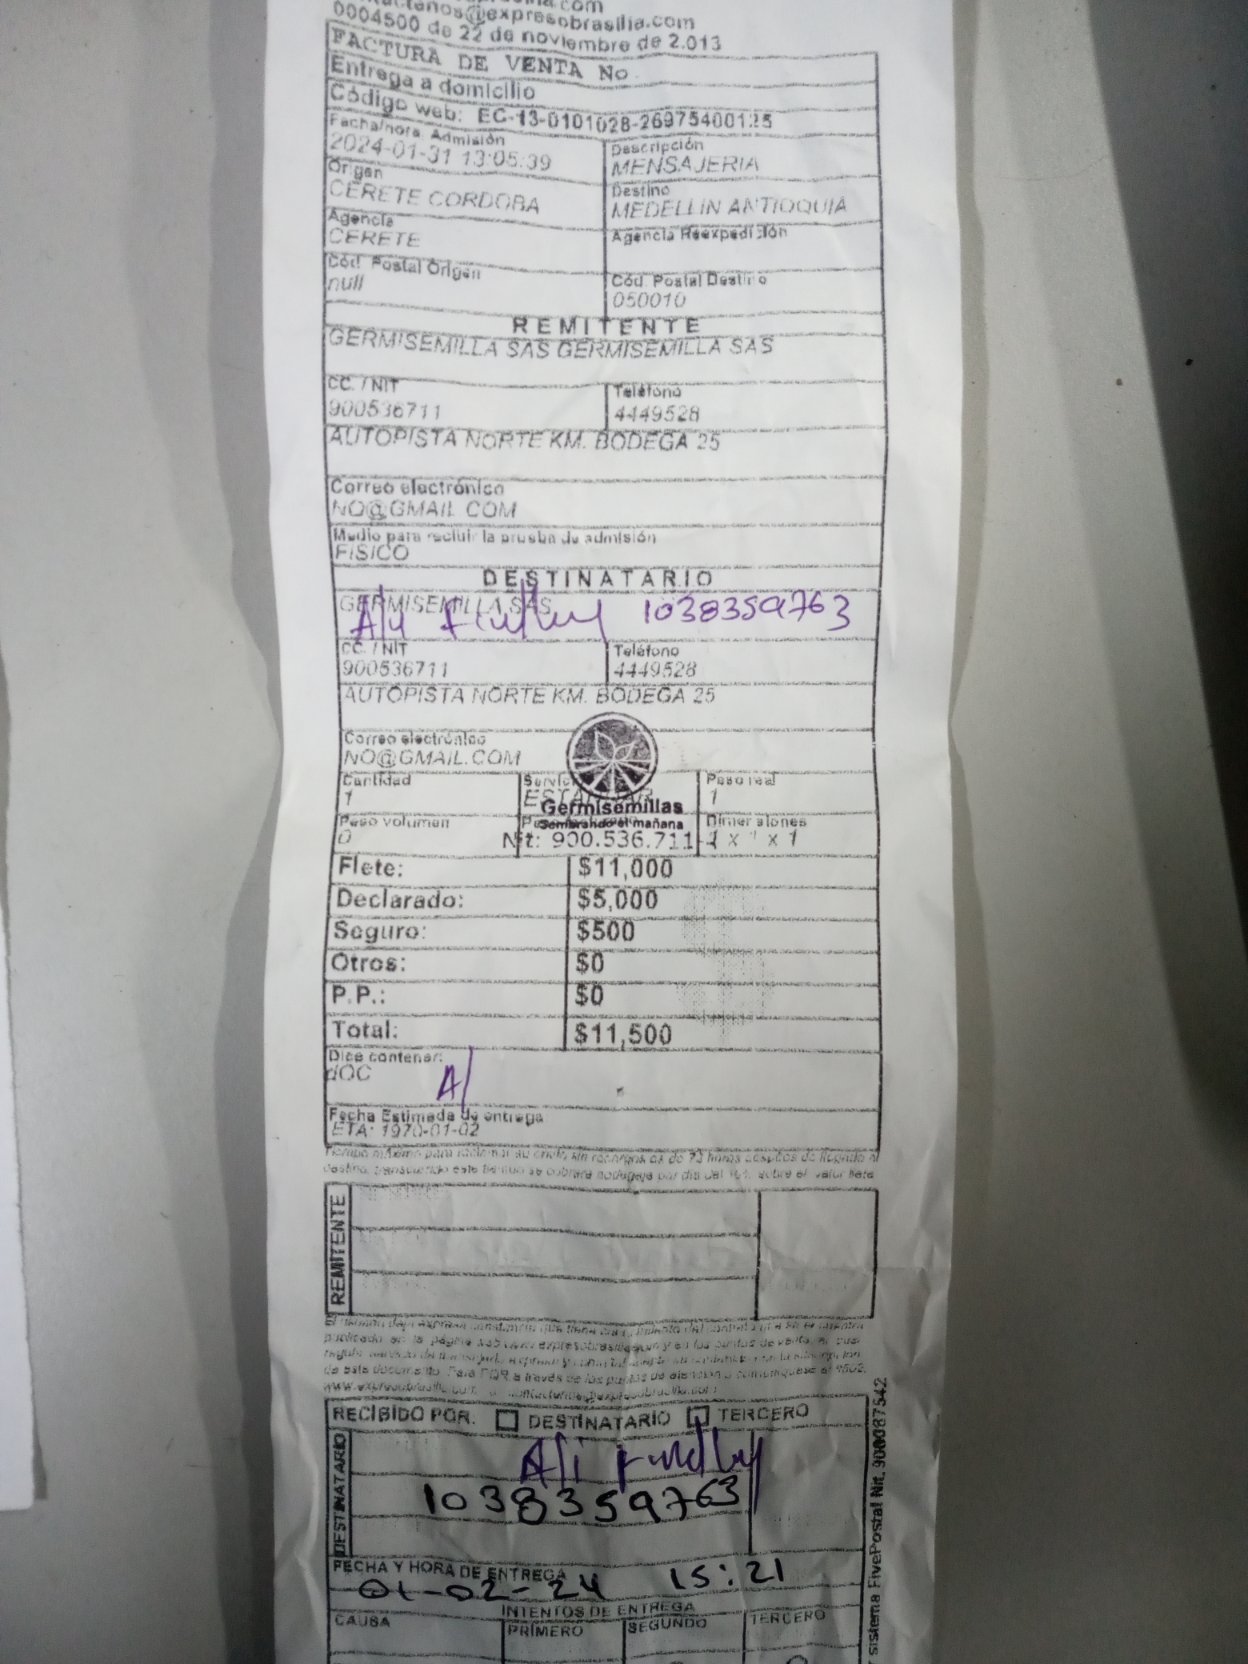 contactenos@expresobrasilia.com
0004500 de 22 de noviembre de 2.013
FACTURA DE VENTA No
Entrega a domicilio
Código web: EC-13-0101028-26975400125
Fecha/hora Admisión
2024-01-31 13:05:39
Descripción
MENSAJERIA
Origen
CERETE CORDOBA
Destino
MEDELLIN ANTIOQUIA
Agencia
CERETE
Agencia Reexpedición
Cód. Postal Origen
null
Cód. Postal Destino
050010
REMITENTE
GERMISEMILLA SAS GERMISEMILLA SAS
CC. / NIT
900536711
Teléfono
4449528
AUTOPISTA NORTE KM. BODEGA 25
Correo electrónico
NO@GMAIL.COM
Medio para recibir la prueba de admisión
FISICO
DESTINATARIO
GERMISEMILLA SAS
1038359763
CC. / NIT
900536711
Teléfono
4449528
AUTOPISTA NORTE KM. BODEGA 25
Correo electrónico
NO@GMAIL.COM
Cantidad
1
Peso real
1
Germisemillas
Sembrando el mañana
Nit: 900.536.711-
Peso volumen
0
Dimensiones
1 x 1 x 1
Flete: $11,000
Declarado: $5,000
Seguro: $500
Otros: $0
P.P.: $0
Total: $11,500
Dice contener:
dOC
Fecha Estimada de entrega
ETA: 1970-01-02
Tiempo máximo para reclamar su envío sin recargos es de 72 horas después de llegado al
destino, transcurrido este tiempo se cobrará bodegaje por día del 10% sobre el valor flete
REMITENTE
RECIBIDO POR: DESTINATARIO TERCERO
DESTINATARIO
1038359763
FECHA Y HORA DE ENTREGA
01-02-24 15:21
INTENTOS DE ENTREGA
CAUSA PRIMERO SEGUNDO TERCERO
sistema FivePostal Nit. 900087542